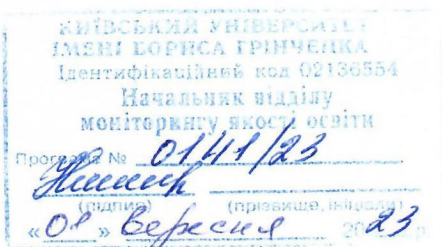 КИЇВСЬКИЙ УНІВЕРСИТЕТ
ІМЕНІ БОРИСА ГРІНЧЕНКА
Ідентифікаційний код 02136554
Начальник відділу
моніторингу якості освіти
Програма № 0141/23
(підпис) (прізвище, ініціали)
« 01 » вересня 2023 р.